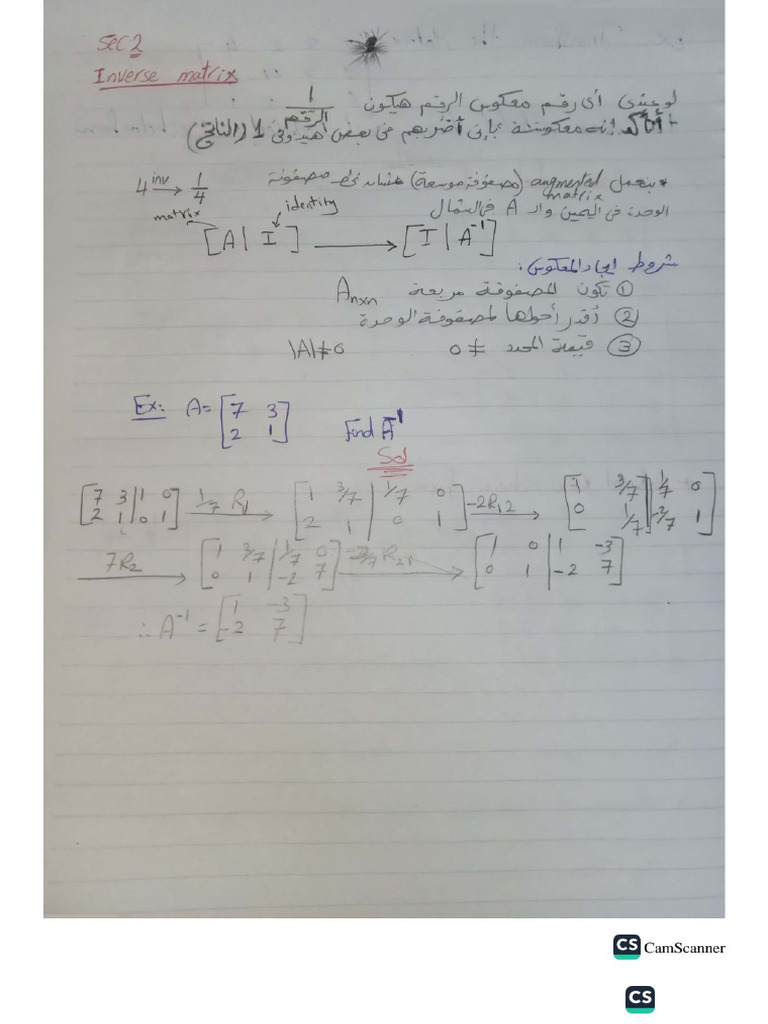 Sec 2
Inverse matrix
لو عندى أى رقم معكوس الرقم هيكون 1/الرقم
أتأكد إنه معكوسة بإنى أضربهم فى بعض هيدونى 1 (الناتج)
4 inv → 1/4
* بنعمل augmented matrix (مصفوفة موسعة) عشان نحط مصفوفة
الوحدة فى اليمين والـ A فى الشمال
matrix identity
[A | I] → [I | A⁻¹]
شروط إيجاد المعكوس:
① تكون المصفوفة مربعة Anxn
② أقدر أحولها لمصفوفة الوحدة
③ قيمة المحدد ≠ 0 |A|≠0
Ex: A= [7 3; 2 1] Find A⁻¹
Sol
[7 3 | 1 0; 2 1 | 0 1] 1/7 R1 → [1 3/7 | 1/7 0; 2 1 | 0 1] -2R12 → [1 3/7 | 1/7 0; 0 1/7 | -2/7 1]
7R2 → [1 3/7 | 1/7 0; 0 1 | -2 7] -3/7 R21 → [1 0 | 1 -3; 0 1 | -2 7]
∴ A⁻¹ = [1 -3; -2 7]
CS CamScanner
CS